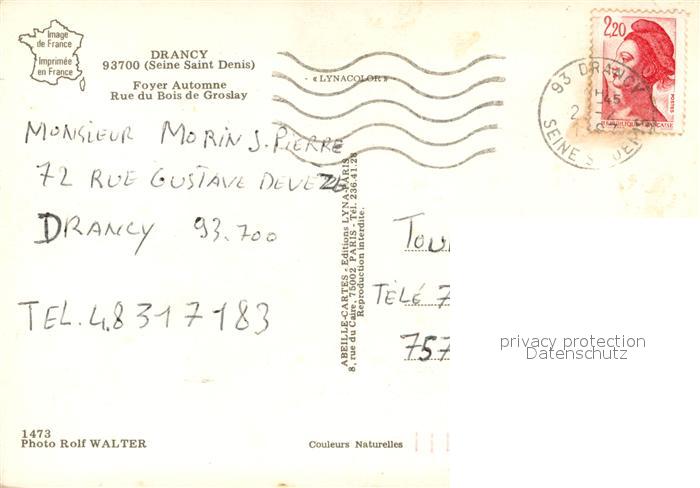 Image
de France
Imprimée
en France
DRANCY
93700 (Seine Saint Denis)
Foyer Automne
Rue du Bois de Groslay
« LYNACOLOR »
2,20
RÉPUBLIQUE FRANÇAISE
POSTES
93 DRANCY
SEINE ST DENIS
MONSIEUR MORIN J. PIERRE
72 RUE GUSTAVE DEVEZE
DRANCY 93.700
TEL. 48317183
ABEILLE-CARTES - Editions LYNA-PARIS
8, rue du Caire, 75002 PARIS - Tél. 236.41.28
Reproduction interdite.
TOU
TÉLÉ 7
757
privacy protection
Datenschutz
1473
Photo Rolf WALTER
Couleurs Naturelles